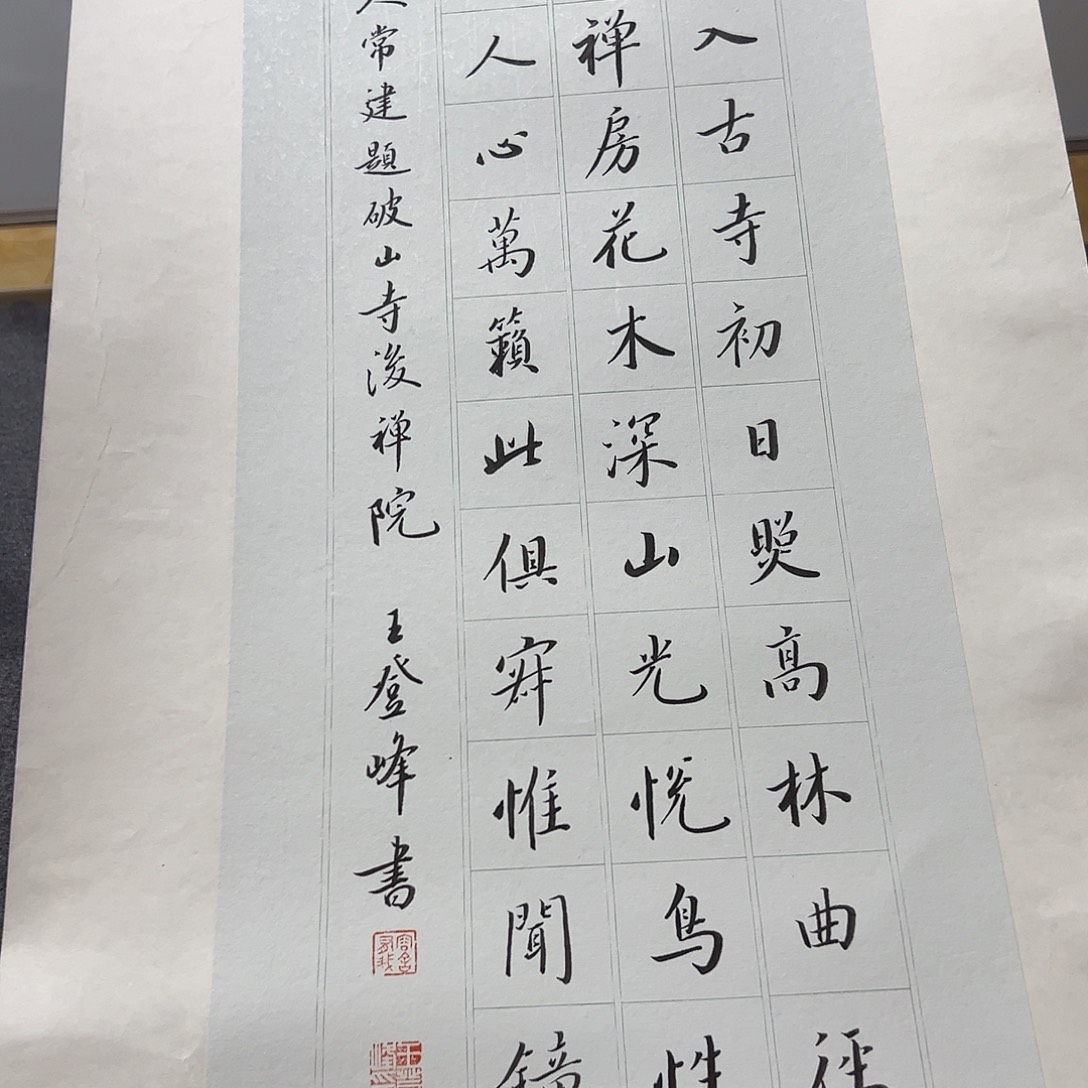 入古寺初日照高林曲徑
禅房花木深山光悦鳥性
人心萬籟此俱寂惟聞鐘
人常建題破山寺後禅院 王登峰書